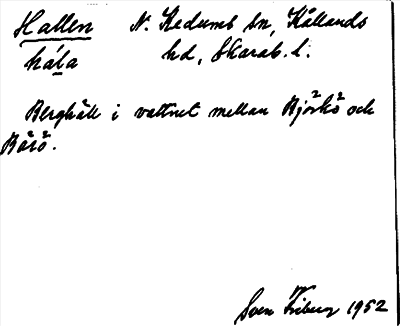 Hallen N. Kedums sn, Kållands
håla hd, Skarab. l.
Berghäll i vattnet mellan Björkö och
Bärö.
Sven Friberg 1952